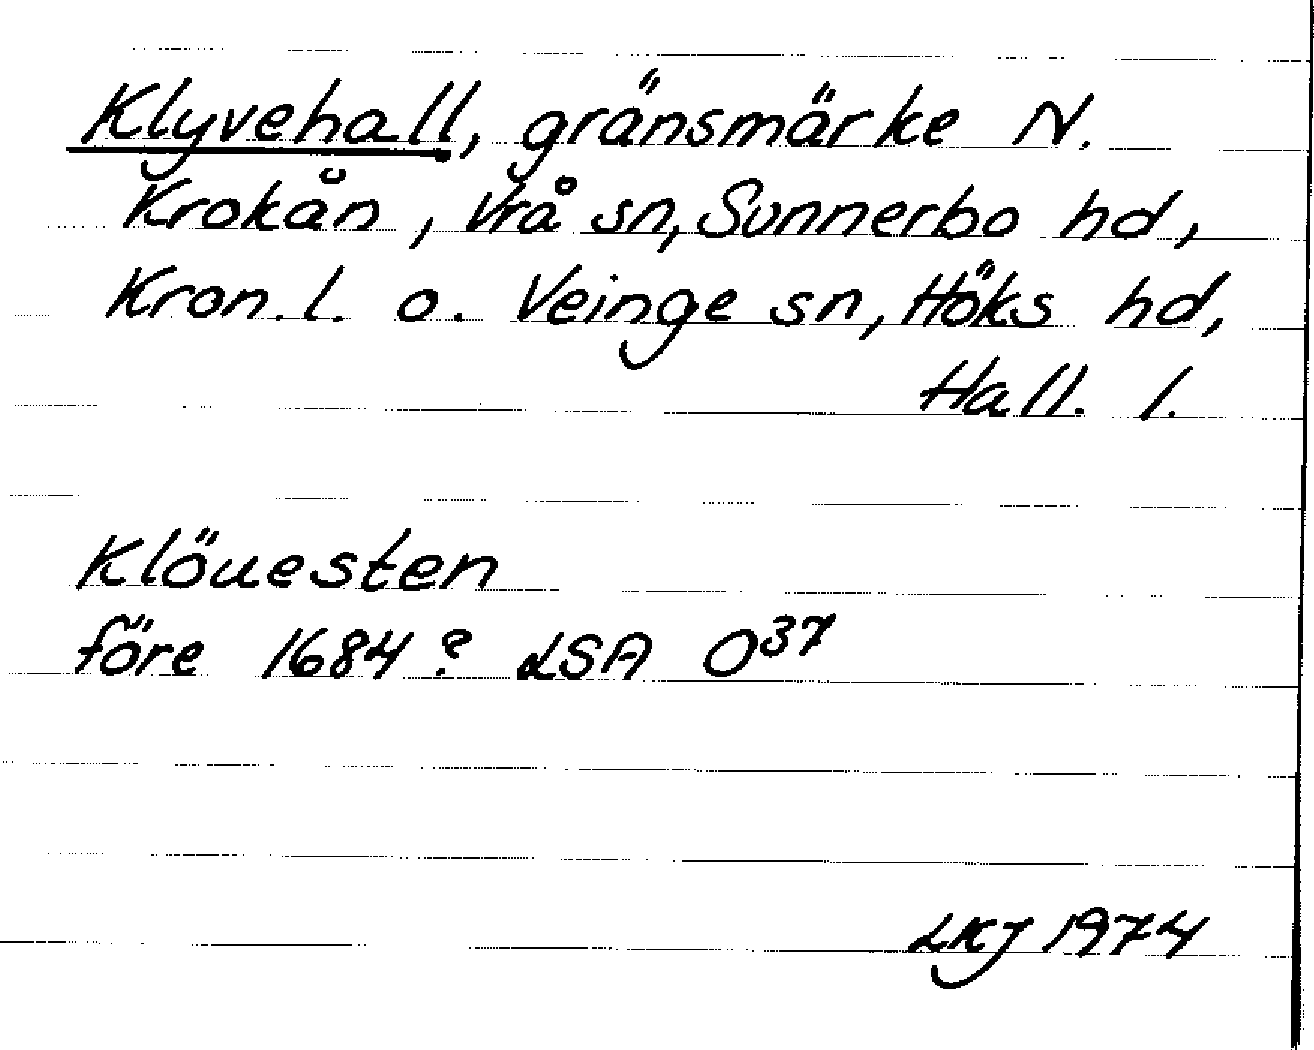 Klyvehall, gränsmärke N.
Krokån, Vrå sn, Sunnerbo hd,
Kron. l. o. Veinge sn, Höks hd,
Hall. l.
Klöuesten
före 1684? LSA O³⁷
LKJ 1974